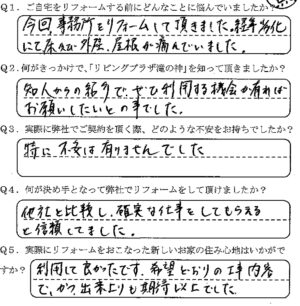 Q1. ご自宅をリフォームする前にどんなことに悩んでいましたか?
今回、事務所をリフォームして頂きました。経年劣化
にて床及び外壁、屋根が痛んでいました。
Q2. 何がきっかけで、「リビングプラザ滝の神」を知って頂きましたか?
知人からの紹介で、ぜひ利用する機会が有れば
お願いしたいとの事でした。
Q3. 実際に弊社でご契約を頂く際、どのような不安をお持ちでしたか?
特に不安は有りませんでした
Q4. 何が決め手となって弊社でリフォームをして頂けましたか?
他社と比較し、確実な仕事をしてもらえる
と信頼してました。
Q5. 実際にリフォームをおこなった新しいお家の住み心地はいかがで
すか?
利用して良かったです。希望どおりの工事内容
で、かつ、出来上りも期待以上でした。